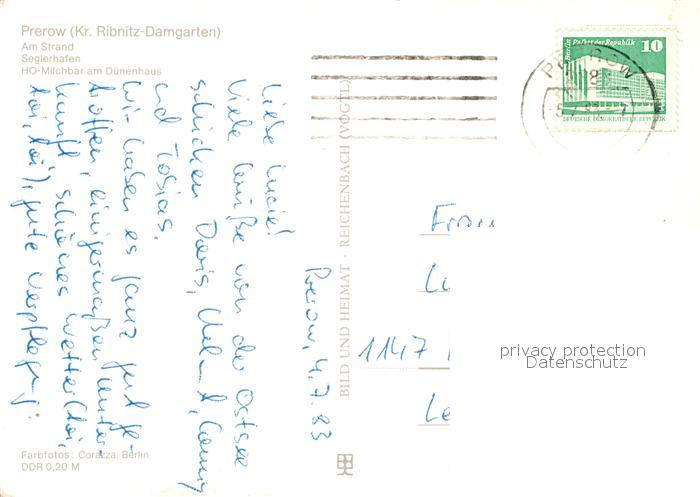 Prerow (Kr. Ribnitz-Damgarten)
Am Strand
Seglerhafen
HO-Milchbar am Dünenhaus
Prerow, 4.7.83
Liebe Lucie!
Viele Grüße von der Ostsee
schicken Doris, Helmut, Conny
und Tobias.
Wir haben es ganz gut ge-
troffen, einigermaßen Unter-
kunft, schönes Wetter (toi,
toi, toi), gute Verpflegung.
Farbfotos: Corazza, Berlin
DDR 0,20 M
BILD UND HEIMAT · REICHENBACH (VOGTL)
Berlin Palast der Republik 10
DEUTSCHE DEMOKRATISCHE REPUBLIK
PREROW
Frau
1147
privacy protection
Datenschutz